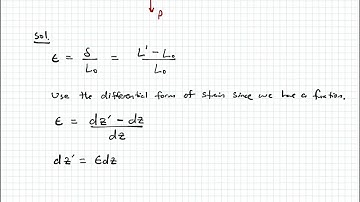 P
Sol.
ε = δ / L₀ = L' - L₀ / L₀
Use the differential form of strain since we have a function.
ε = dz' - dz / dz
dz' = εdz